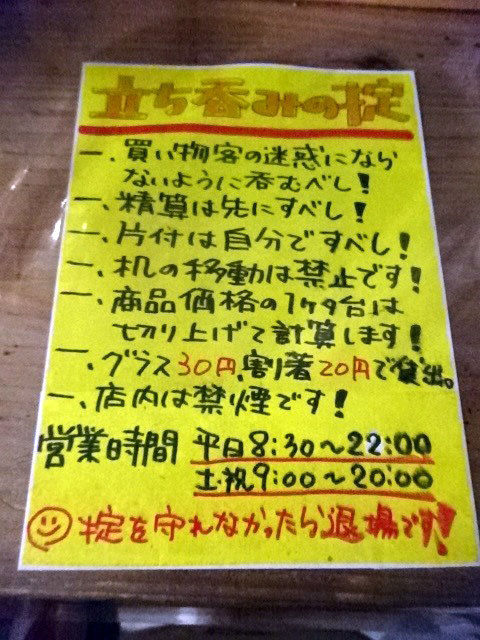 立ち呑みの掟
一、買い物客の迷惑になら
ないように呑むべし!
一、精算は先にすべし!
一、片付は自分ですべし!
一、机の移動は禁止です!
一、商品価格の1ヶ台は
切り上げて計算します!
一、グラス30円、割箸20円で貸出。
一、店内は禁煙です!
営業時間 平日8:30〜22:00
土・祝9:00〜20:00
掟を守れなかったら退場です!